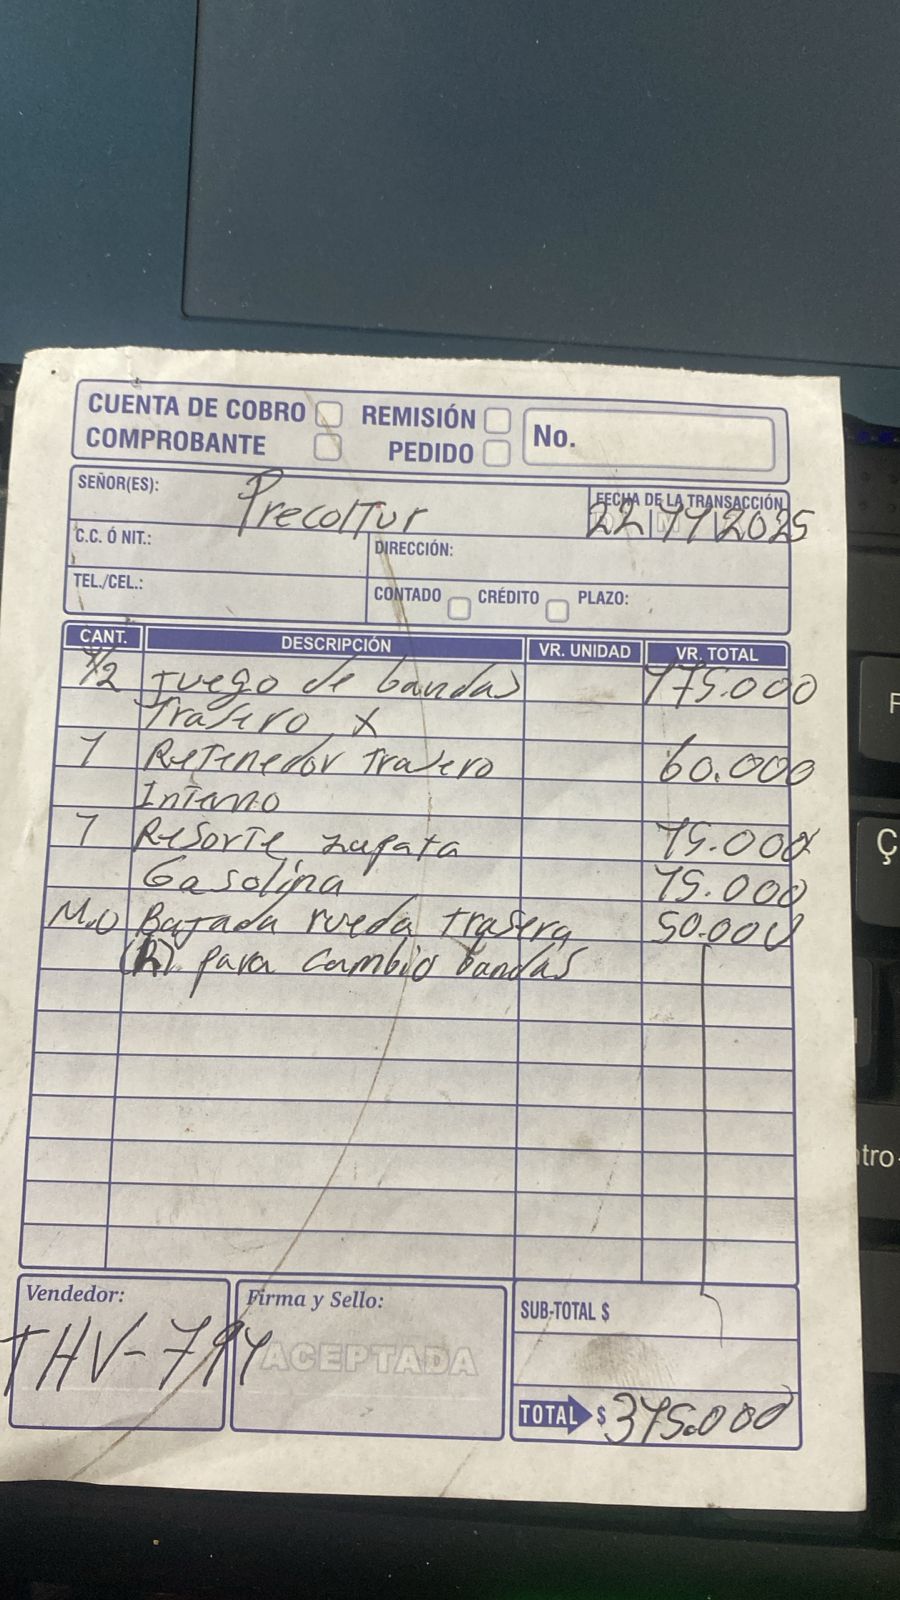 CUENTA DE COBRO REMISIÓN No.
COMPROBANTE PEDIDO
SEÑOR(ES): Precoltur FECHA DE LA TRANSACCIÓN
22 11 2025
C.C. Ó NIT.: DIRECCIÓN:
TEL./CEL.: CONTADO CRÉDITO PLAZO:
CANT. DESCRIPCIÓN VR. UNIDAD VR. TOTAL
1/2 Juego de bandas 175.000
Trasero X
1 Retenedor trasero 60.000
Interno
1 Resorte zapata 15.000
Gasolina 15.000
M.O Bajada rueda trasera 50.000
(R) para cambio bandas
Vendedor: Firma y Sello: SUB-TOTAL $
THV-791 ACEPTADA
TOTAL $ 315.000
Ç